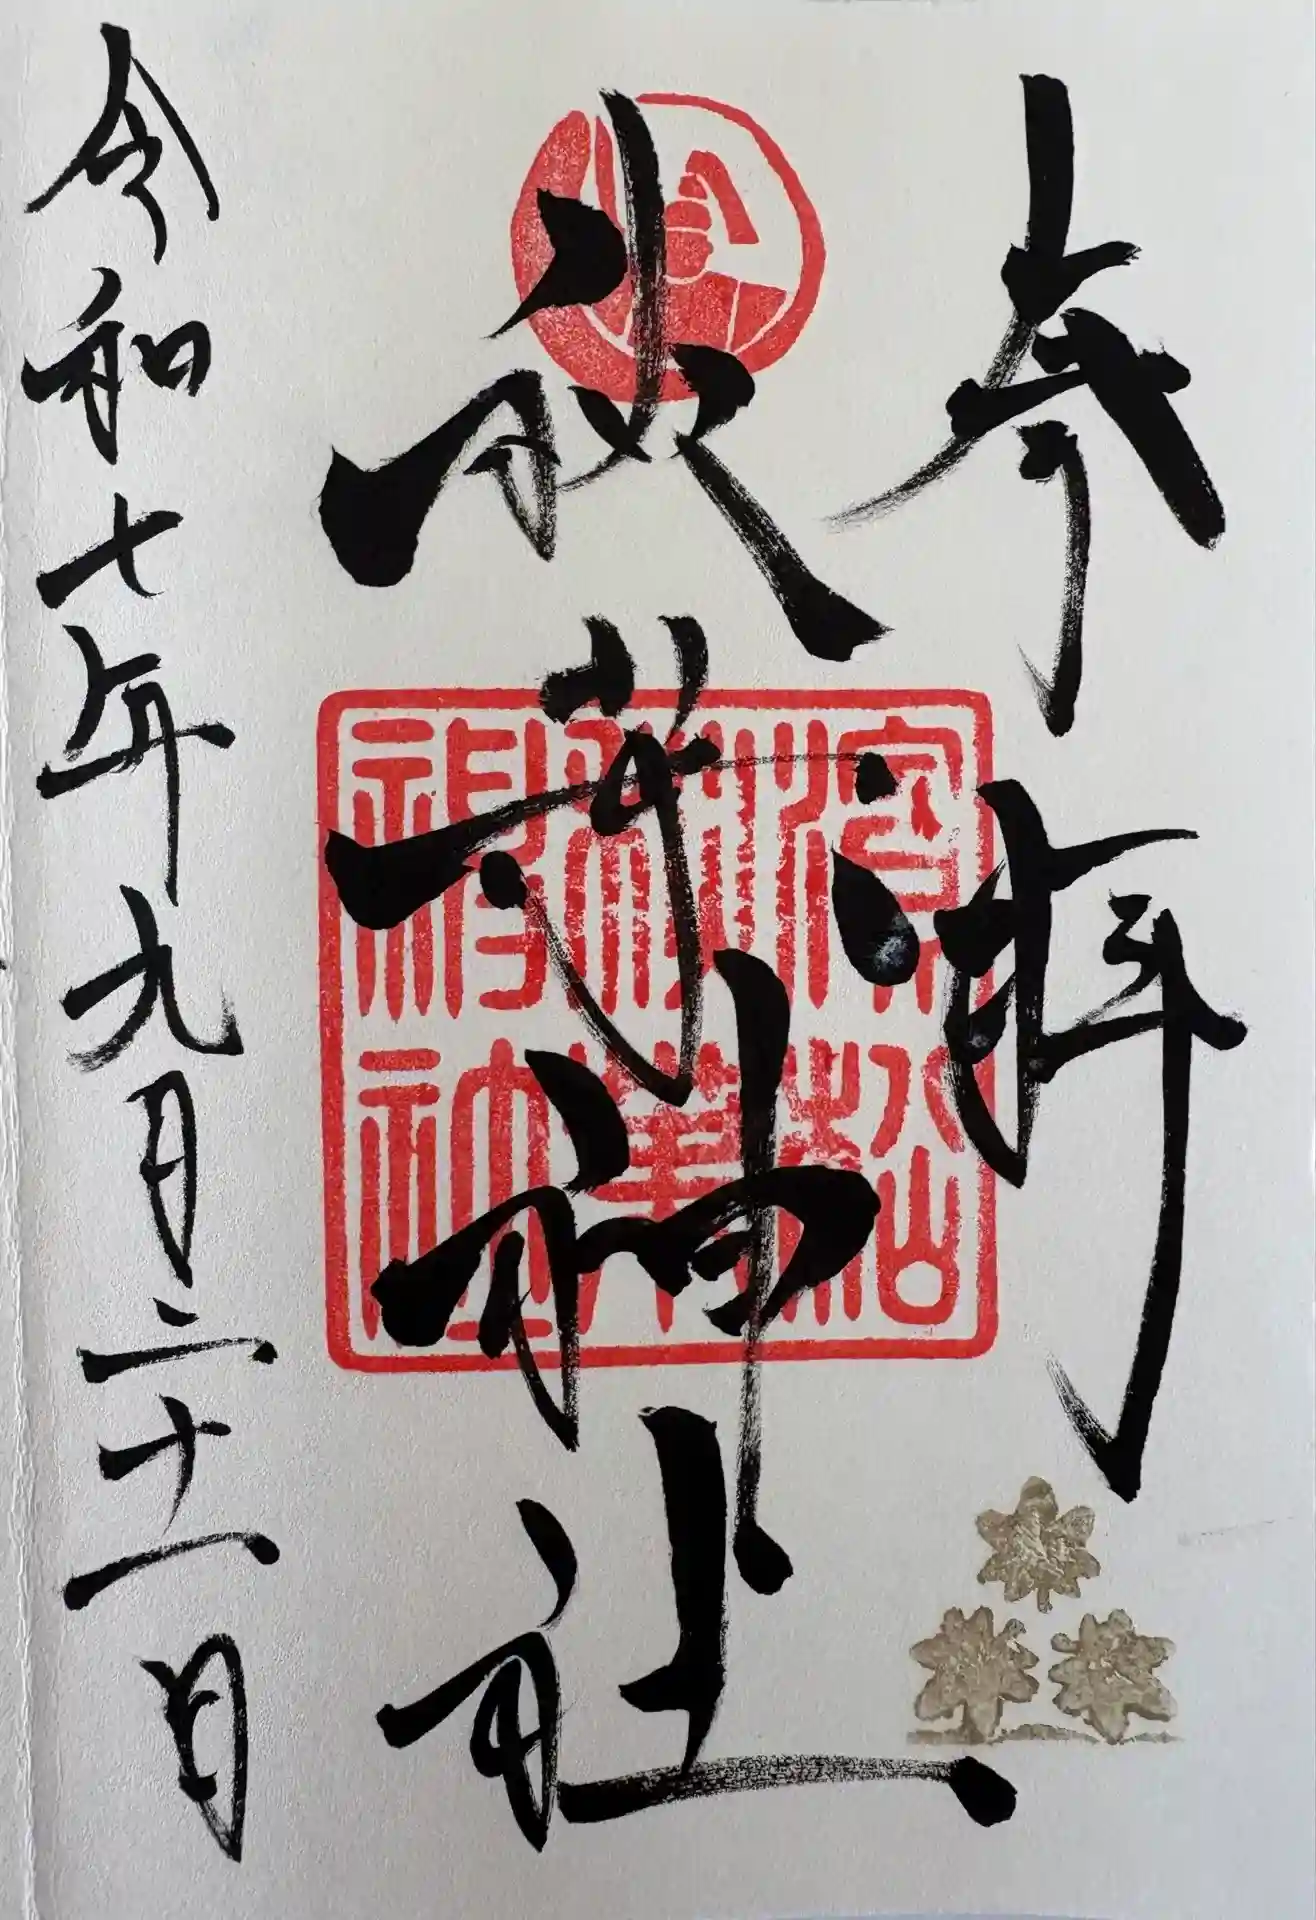 奉拝
秋葉神社
濱松
秋葉
神社
令和七年九月二十一日